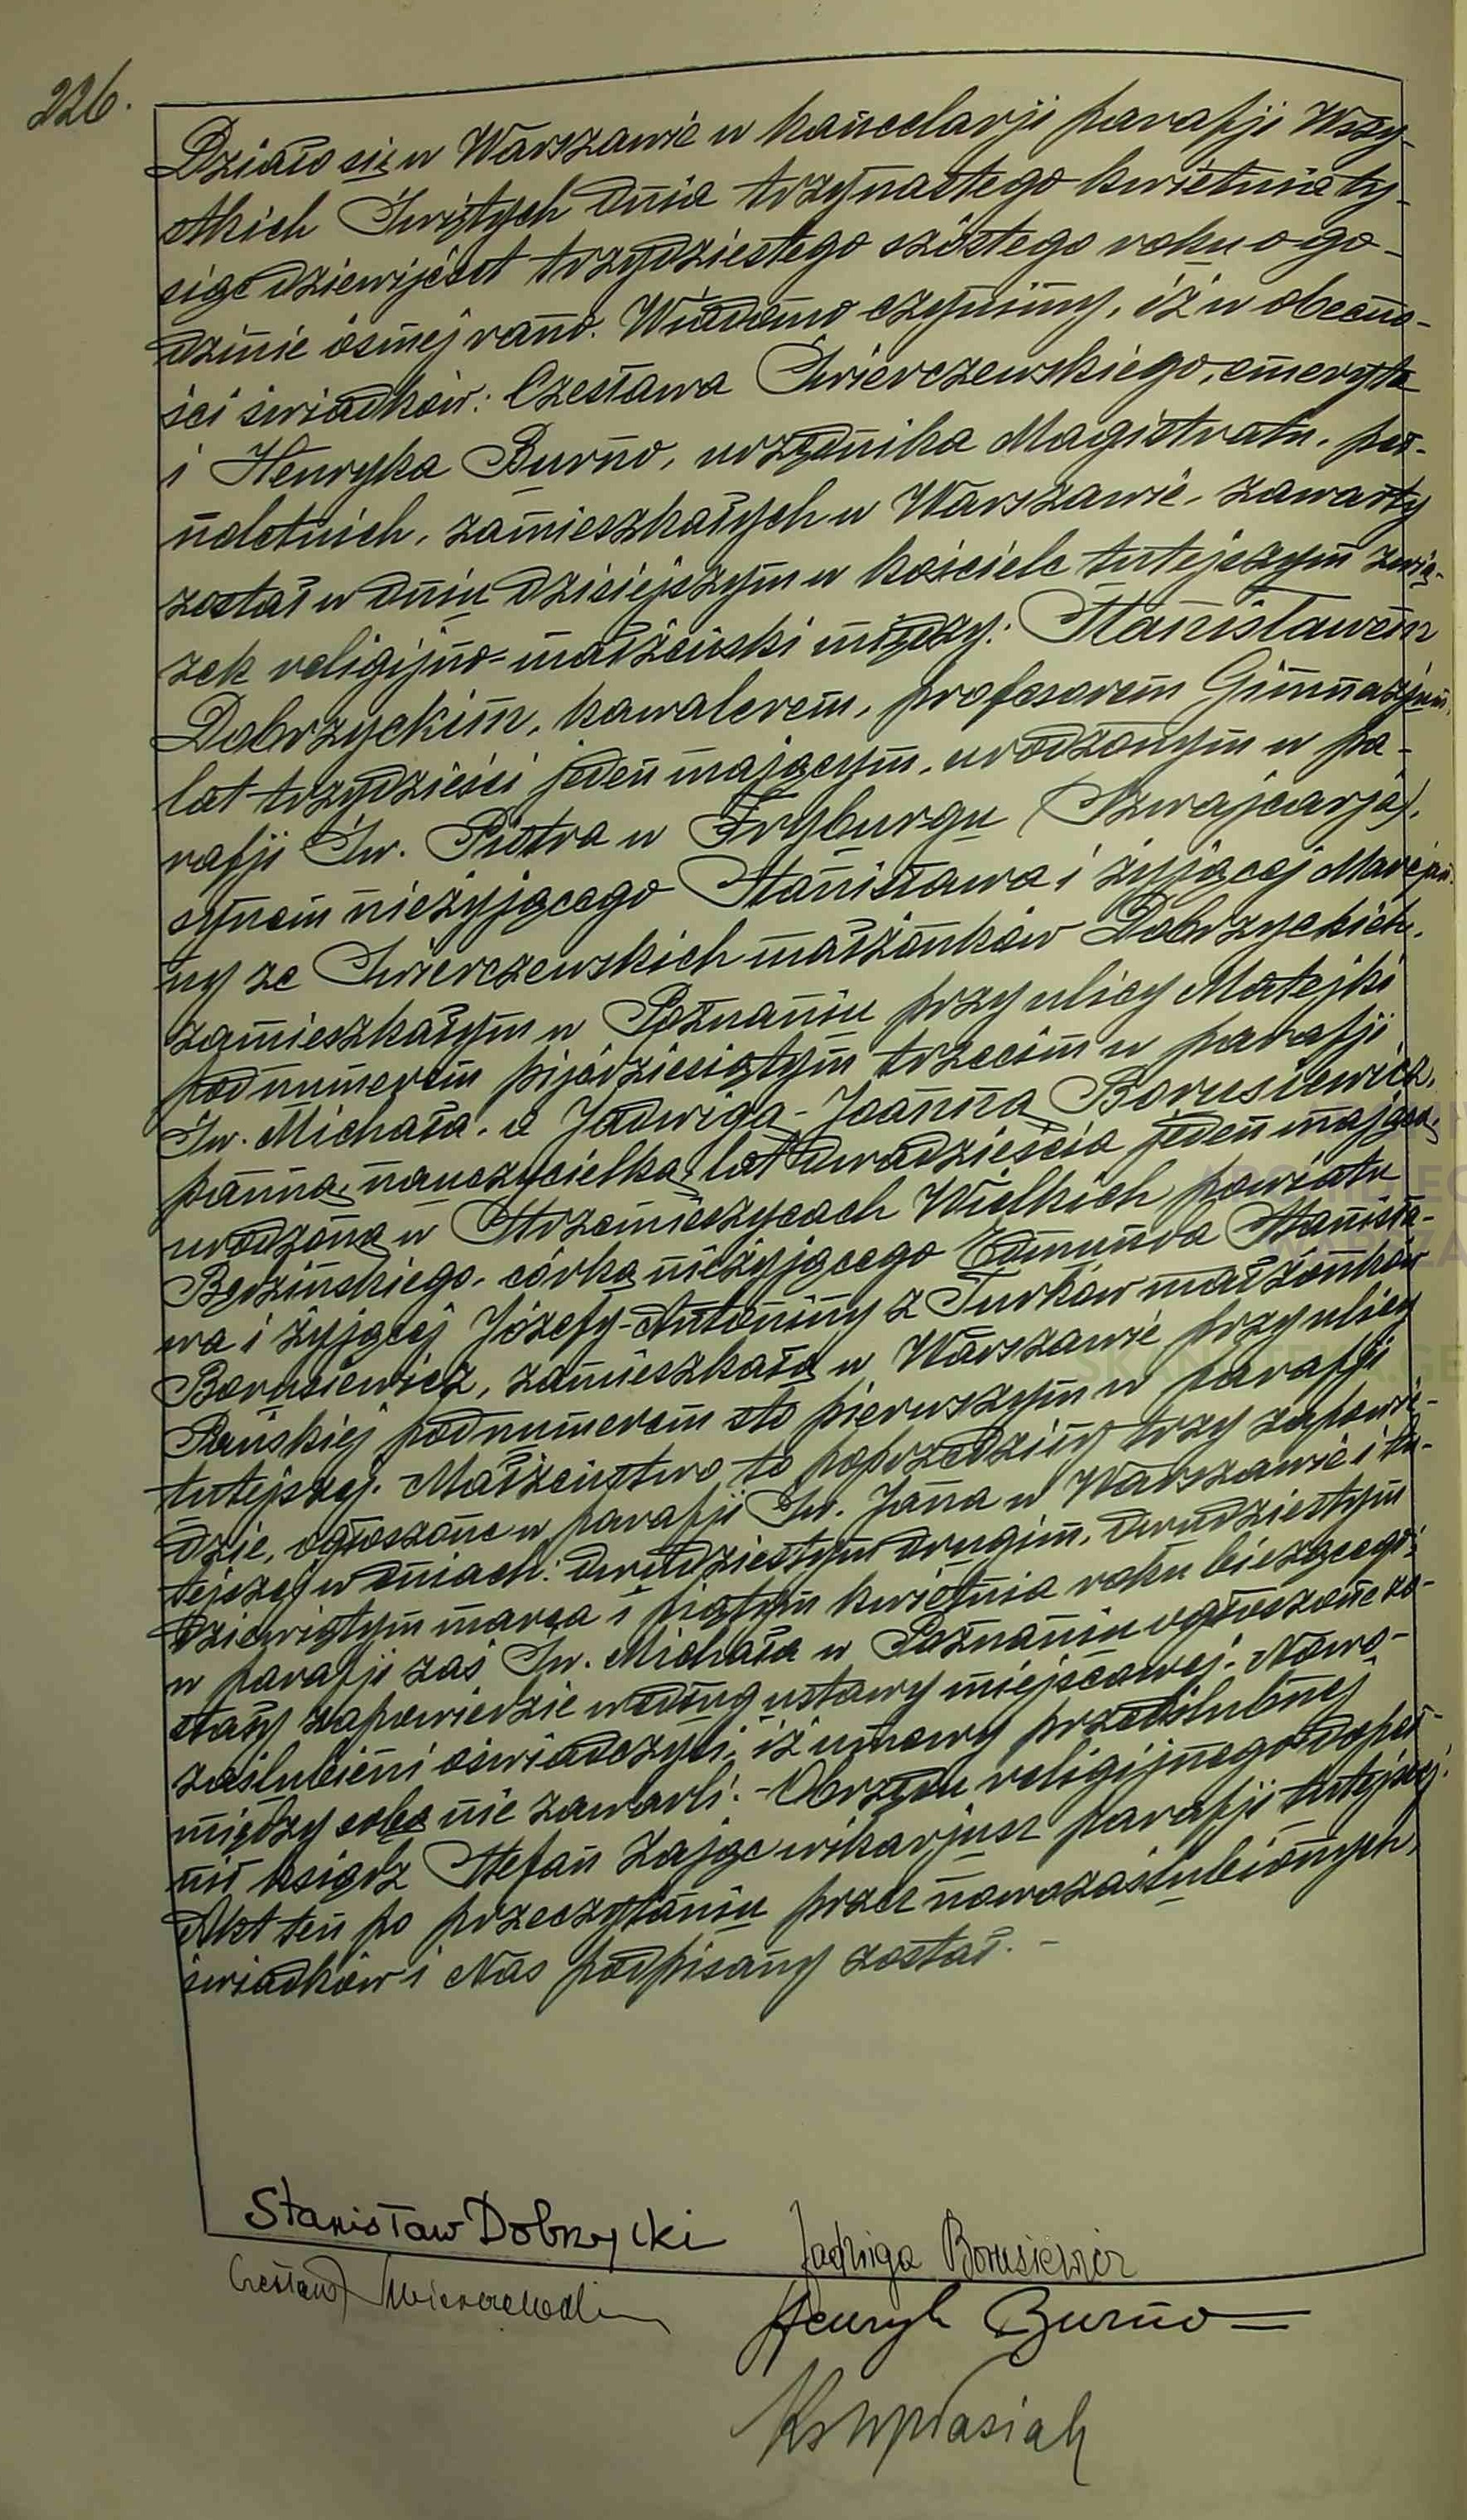 226.
Działo się w Warszawie w kancelarji parafji Wszy-
stkich Świętych dnia trzynastego kwietnia ty-
siąc dziewijęset trzydziestego szóstego roku o go-
dzinie ósmej rano. Wiadomo czynimy, iż w obecno-
ści świadków: Czesława Świerczewskiego, emeryta
i Henryka Burno, urzędnika Magistratu, peł-
noletnich, zamieszkałych w Warszawie, zawarty
został w dniu dzisiejszym w kościele tutejszym zwią-
zek religijno-małżeński między: Stanisławem
Dobrzyckim, kawalerem, profesorem Gimnazjum,
lat trzydzieści jeden mającym, urodzonym w pa-
rafji Św. Piotra w Fryburgu (Szwajcarja),
synem nieżyjącego Stanisława i żyjącej Marejan-
ny ze Świerczewskich małżonków Dobrzyckich,
zamieszkałym w Poznaniu przy ulicy Matejki
pod numerem pijędziesiątym trzecim w parafji
Św. Michała, a Jadwigą-Joanną Borusiewicz,
panną, nauczycielką, lat dwadzieścia jeden mającą,
urodzoną w Strzemieszycach Wielkich powiatu
Będzińskiego, córką nieżyjącego Edmunda Stanisła-
wa i żyjącej Józefy-Antoniny z Turków małżonków
Borusiewicz, zamieszkałą w Warszawie przy ulicy
Pańskiej pod numerem sto pierwszym w parafji
tutejszej. Małżeństwo to poprzedziły trzy zapowie-
dzie, ogłoszone w parafji Św. Jana w Warszawie i tu-
tejszej w dniach: dwudziestym drugim, dwudziestym
dziewiątym marca i piątym kwietnia roku bieżącego;
w parafji zaś Św. Michała w Poznaniu ogłoszone zo-
stały zapowiedzie według ustawy miejscowej. Nowo-
zaślubieni oświadczyli, iż umowy przedślubnej
między sobą nie zawarli. - Obrzędu religijnego dopeł-
nił ksiądz Stefan Zając wikarjusz parafji tutejszej.
Akt ten po przeczytaniu przez nowozaślubionych,
świadków i Nas podpisany został. -
Stanisław Dobrzycki Jadwiga Borusiewicz
Czesław Świerczewski
Henryk Burno